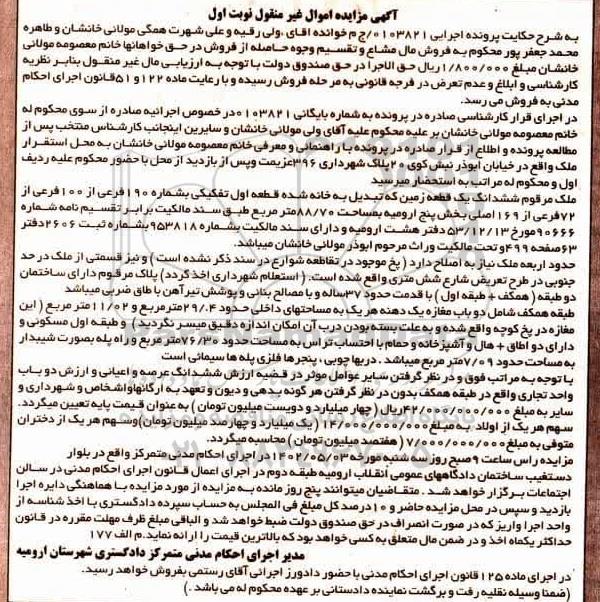 آگهی مزایده اموال غیر منقول نوبت اول
به شرح حکایت پرونده اجرایی ۰۱۰۳۸۲۱/ج م خوانده اقای ،ولی رقیه و علی شهرت همگی مولائی خانشان و طاهره
محمد جعفر پور محکوم به فروش مال مشاع و تقسیم وجوه حاصله از فروش در حق خواهانها خانم معصومه مولائی
خانشان مبلغ ۱/۸۰۰/۰۰۰ریال حق الاجرا در حق صندوق دولت با توجه به ارزیابی مال غیر منقول بنابر نظریه
کارشناسی و ابلاغ و عدم تعرض در فرجه قانونی به مر حله فروش رسیده و با رعایت ماده ۱۲۲و ۵۱قانون اجرای احکام
مدنی به فروش می رسد.
در اجرای قرار کارشناسی صادره در پرونده به شماره بایگانی ۰۱۰۳۸۲۱در خصوص اجرائیه صادره از سوی محکوم له
خانم معصومه مولائی خانشان بر علیه محکوم علیه آقای ولی مولائی خانشان و سایرین اینجانب کارشناس منتخب پس از
مطالعه پرونده و اطلاع از قرار صادره در پرونده با راهنمائی و معرفی خانم معصومه مولائی خانشان به محل استقرار
ملک واقع در خیابان ابوذر نبش کوی ۲۰پلاک شهرداری ۳۹۶عزیمت وپس از بازدید از محل با حضور محکوم علیه ردیف
اول و محکوم له مراتب به استحضار میرسید
ملک مرقوم ششدانگ یک قطعه زمین که تبدیل به خانه شده قطعه اول تفکیکی بشماره ۱۹۰فرعی از ۱۰۰فرعی از
۷۲فرعی از ۱۶۹اصلی بخش پنج ارومیه بمساحت ۸۸/۷۰متر مربع طبق سند مالکیت برابر تقسیم نامه شماره
۹۰۶۶۶مورخ ۵۳/۱۲/۱۳ دفتر هشت ارومیه و دارای سند مالکیت بشماره ۹۵۳۸۱۸بشماره ثبت ۲۶۰۶دفتر
۶۳صفحه ۴۹۹و تحت مالکیت وراث مرحوم ابوذر مولائی خانشان میباشد.
حدود اربعه ملک نیاز به اصلاح دارد ( پخ موجود در تقاطعه شوارع در سند ذکر نشده است ) و نیز قسمتی از ملک در حد
جنوبی در طرح تعریض شارع شش متری واقع شده است . ( استعلام شهرداری اخذ گردد) پلاک مرقوم دارای ساختمان
دو طبقه ( همکف + طبقه اول ) با قدمت حدود ۳۷ساله و با مصالح بنائی و پوشش تیر آهن با طاق ضربی میباشد
طبقه همکف شامل دو باب مغازه یک دهنه هر یک به مساحتهای داخلی حدود ۲۹/۰۴مترمربع و ۱۱/۰۲متر مربع ( این
مغازه در پخ کوچه واقع شده و به علت بسته بودن درب آن امکان اندازه دقیق میسر نگردید) و طبقه اول مسکونی و
دارای دو اطاق + هال و آشپزخانه و حمام با احتساب تراس به مساحت حدود ۷۶/۳۰متر مربع و راه پله بصورت شیبدار
به مساحت حدود ۷/۰۹متر مربع میباشد . دربها چوبی ، پنجرها فلزی پله ها سیمائی است
با توجه به مراتب فوق و در نظر گرفتن سایر عوامل موثر در قضیه ارزش ششدانگ عرصه و اعیانی و ارزش دو باب
واحد تجاری واقع در طبقه همکف بدون در نظر گرفتن هر گونه بدهی و دیون و تعهد به ارگانهاواشخاص و شهرداری و
سایر به مبلغ ۴۲/۰۰۰/۰۰۰/۰۰۰ریال ( چهار میلیارد و دویست میلیون تومان ) به عنوان قیمت پایه تعیین میگردد.
سهم هر یک از اولاد به مبلغ ۱۴/۰۰۰/۰۰۰/۰۰۰ ( یک میلیارد و چهار صد میلیون تومان )وسهم هر یک از دختران
متوفی به مبلغ۷/۰۰۰/۰۰۰/۰۰۰ ( هفتصد میلیون تومان ) محاسبه میگردد.
مزایده راس ساعت ۹صبح روز سه شنبه مورخه ۱۴۰۲/۰۵/۰۳در اجرای احکام مدنی متمرکز واقع در بلوار
دستغیب ساختمان دادگاههای عمومی انقلاب ارومیه طبقه دوم در اجرای اعمال قانون اجرای احکام مدنی در سالن
اجتماعات برگزار خواهد شد . متقاضیان میتوانند پنج روز مانده به مزایده از مورد مزایده با هماهنگی دایره اجرا
بازدید و سپس در محل مزایده حاضر و ۱۰درصد کل مبلغ فی المجلس به حساب سپرده دادگستری با اخذ شناسه از
واحد اجرا واریز که در صورت انصراف در حق صندوق دولت ضبط خواهد شد و الباقی مبلغ ظرف مهلت مقرره در قانون
حداکثر یکماه اخذ و در ضمن مال متعلق به کسی خواهد بود که بالاترین قیمت را ارائه نماید.م الف ۱۷۷
مدیر اجرای احکام مدنی متمرکز دادگستری شهرستان ارومیه
در اجرای ماده ۱۲۵قانون اجرای احکام مدنی با حضور دادورز اجرائی آقای رستمی بفروش خواهد رسید.
(ضمنا وسیله نقلیه رفت و برگشت نماینده دادستانی بر عهده محکوم له می باشد .)